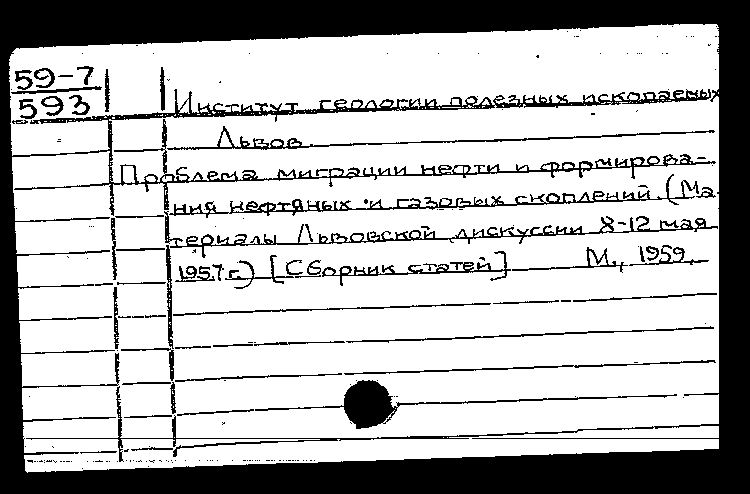 59-7
593
Институт геологии полезных ископаемых
Львов.
Проблема миграции нефти и формирова-
ния нефтяных и газовых скоплений. (Ма-
териалы Львовской дискуссии 8-12 мая
1957 г.) [Сборник статей] М., 1959.